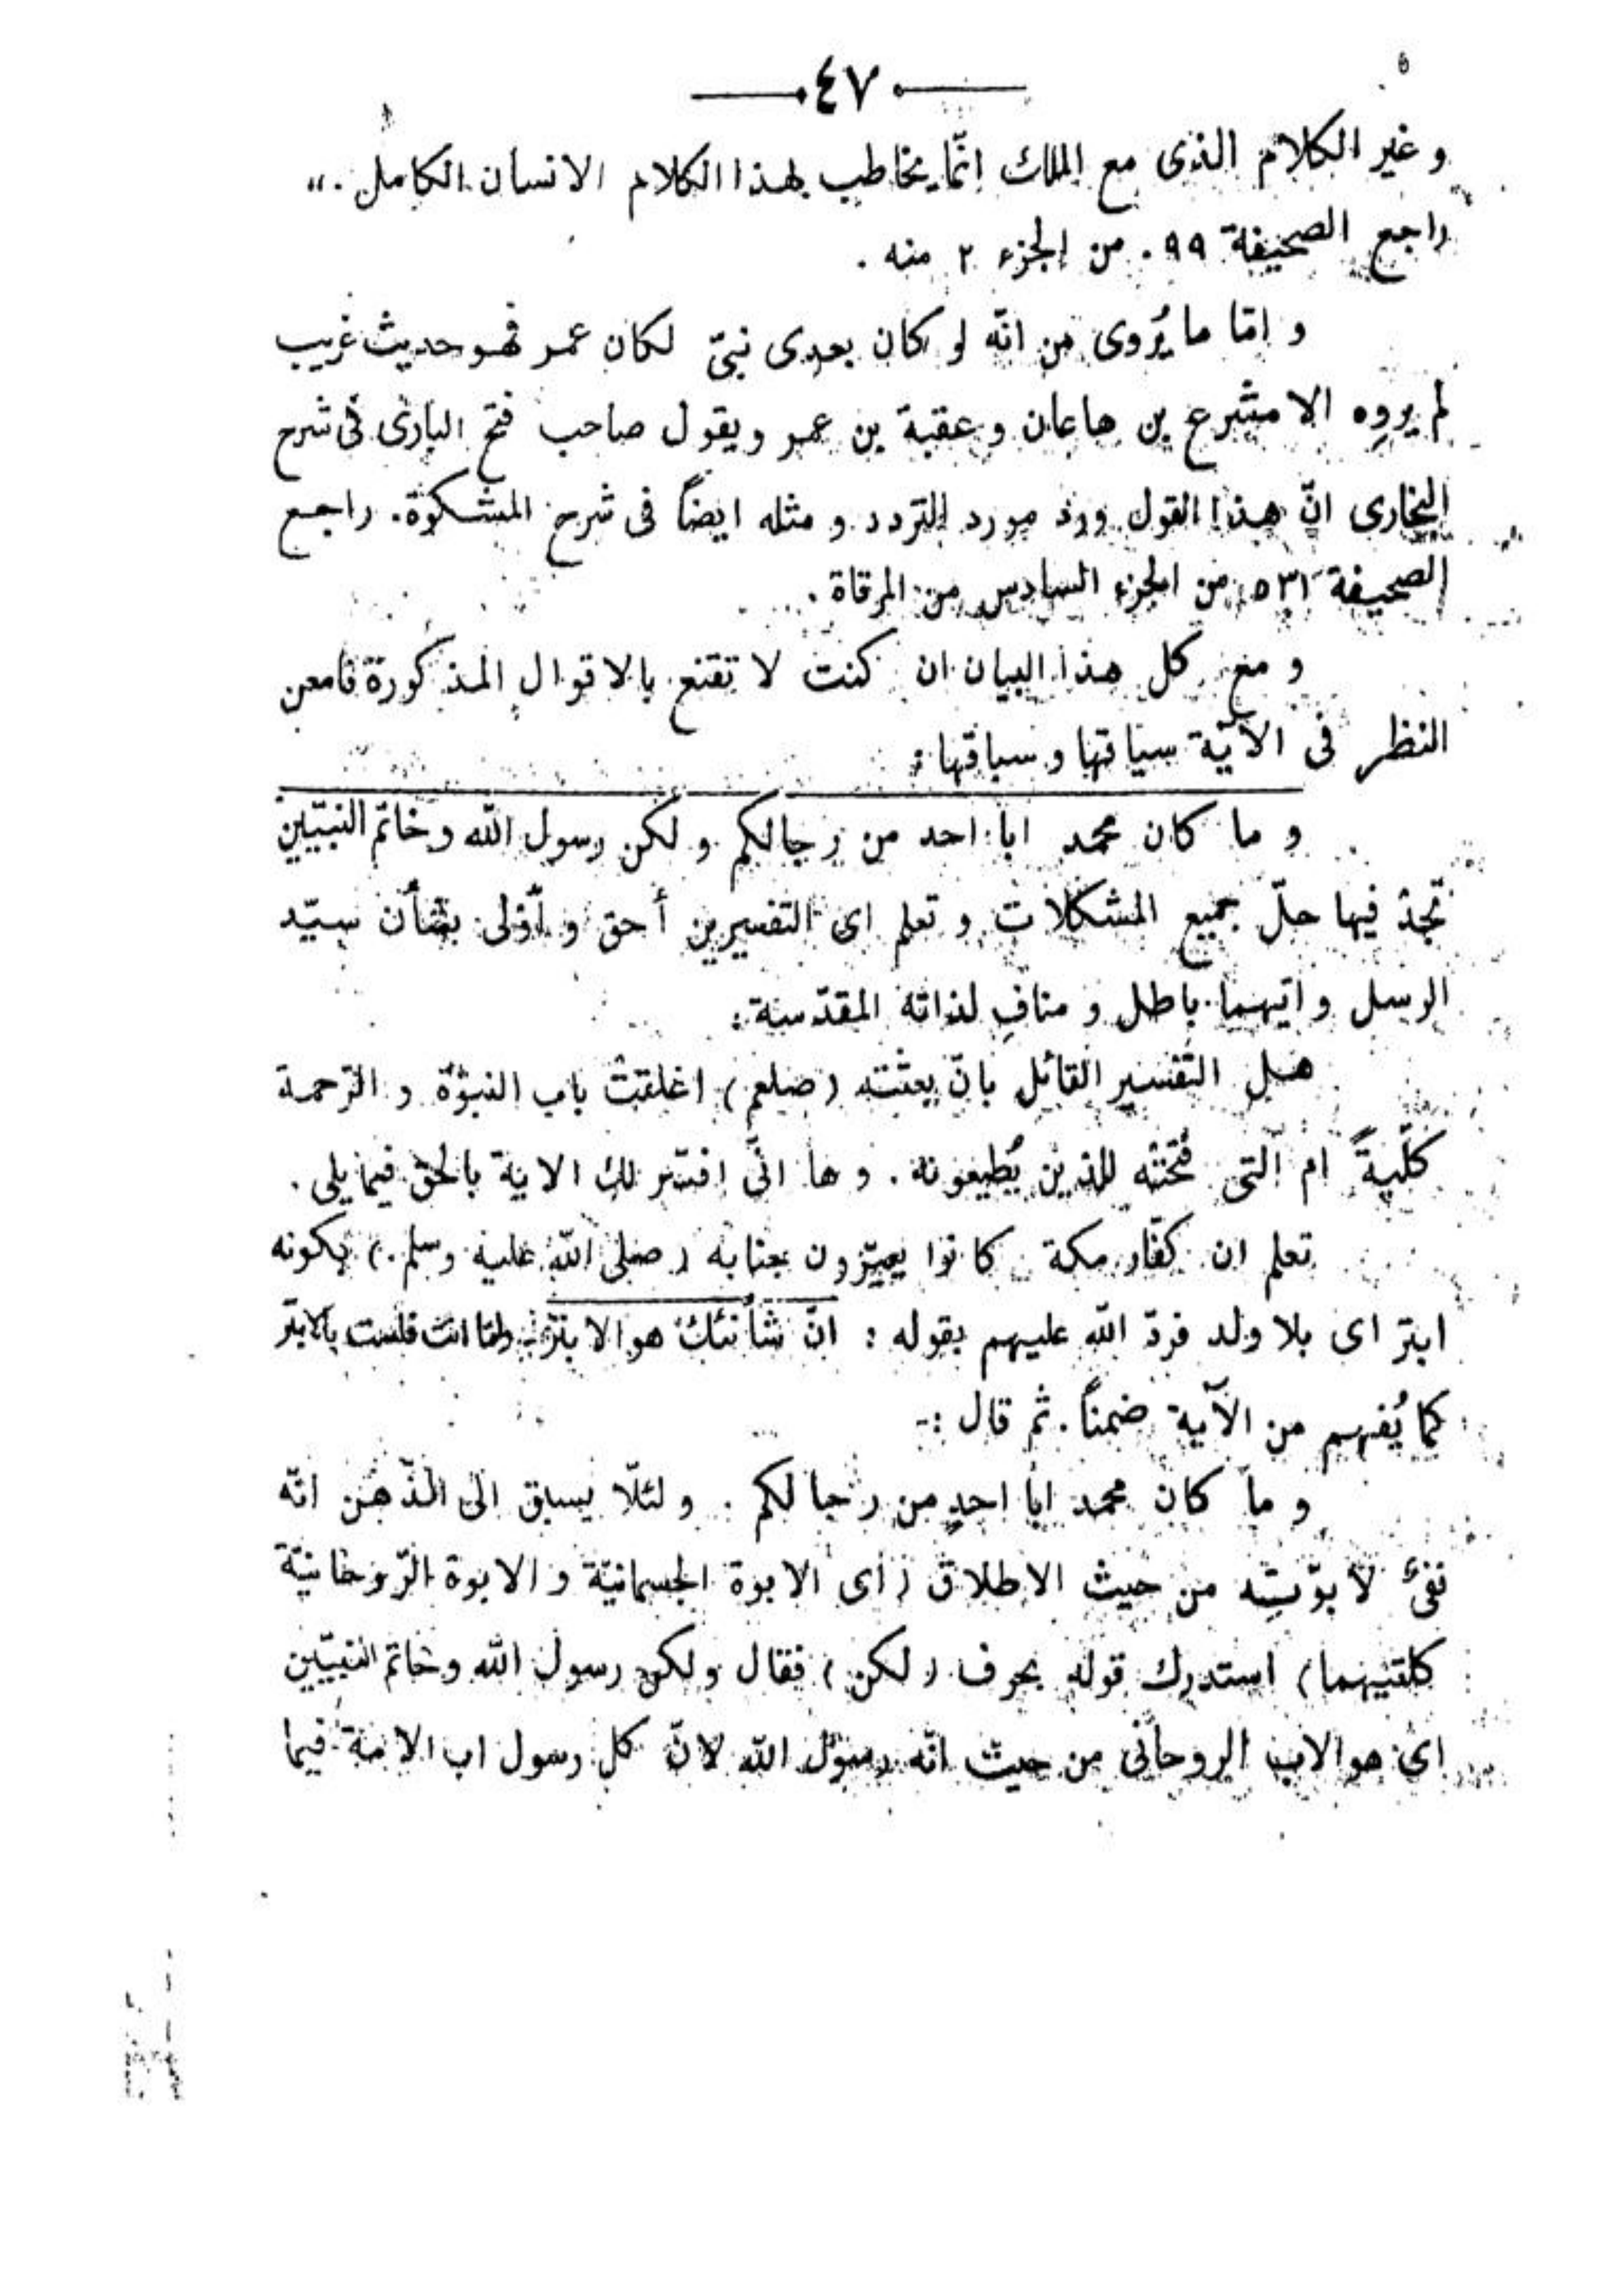 ٤٧
و غير الكلام الذى مع الملك انّما يخاطب بهذا الكلام الانسان الكامل .،،
راجع الصحيفة ٩٩ . من الجزء ٢ منه .
و امّا ما يُروى من انّه لو كان بعدى نبىّ لكان عمر فهو حديث غريب
لم يروِه الا مشرع بن هاعان و عقبة بن عمر ويقول صاحب فتح البارى فى شرح
البخارى انّ هذا القول ورد مورد التردد و مثله ايضاً فى شرح المشكوة. راجع
الصحيفة ٥٣١ من الجزء السادس من المرقاة .
و مع كل هذا البيان ان كنت لا تقتنع بالاقوال المذكورة فامعن
النظر فى الآية سياقها و سباقها :
و ما كان محمد ابا احد من رجالكم و لكن رسول الله و خاتم النبيّين
تجد فيها حلّ جميع المشكلات و تعلم اى التفسيرين أحق و أولى بشأن سيّد
الرسل و ايّهما باطل و منافٍ لذاته المقدّسة :
هل التفسير القائل بانّ بعثته (صلعم) اغلقت باب النبوّة و الرّحمة
كلّيةً ام التى فتحته للذين يُطيعونه . و ها انّى افسّر لك الاية بالحق فيما يلى .
تعلم ان كفّار مكة كانوا يعيّرون جنابه (صلى الله عليه وسلم .) بكونه
ابتر اى بلا ولد فردّ الله عليهم بقوله : انّ شأنئك هو الابتر وامّا انت فلست بالابتر
كما يُفهم من الآية ضمناً . ثم قال :-
و ما كان محمد ابا احدٍ من رجالكم . و لئلّا يسبق الى الذّهن انّه
نفىٌ لأبوّته من حيث الاطلاق (اى الابوة الجسمانيّة و الابوة الرّوحانيّة
كلتيهما) استدرك قوله بحرف (لكن) فقال ولكن رسول الله وخاتم النبيّين
اى هو الاب الروحانى من حيث انّه رسول الله لانّ كل رسول اب الامة فيما